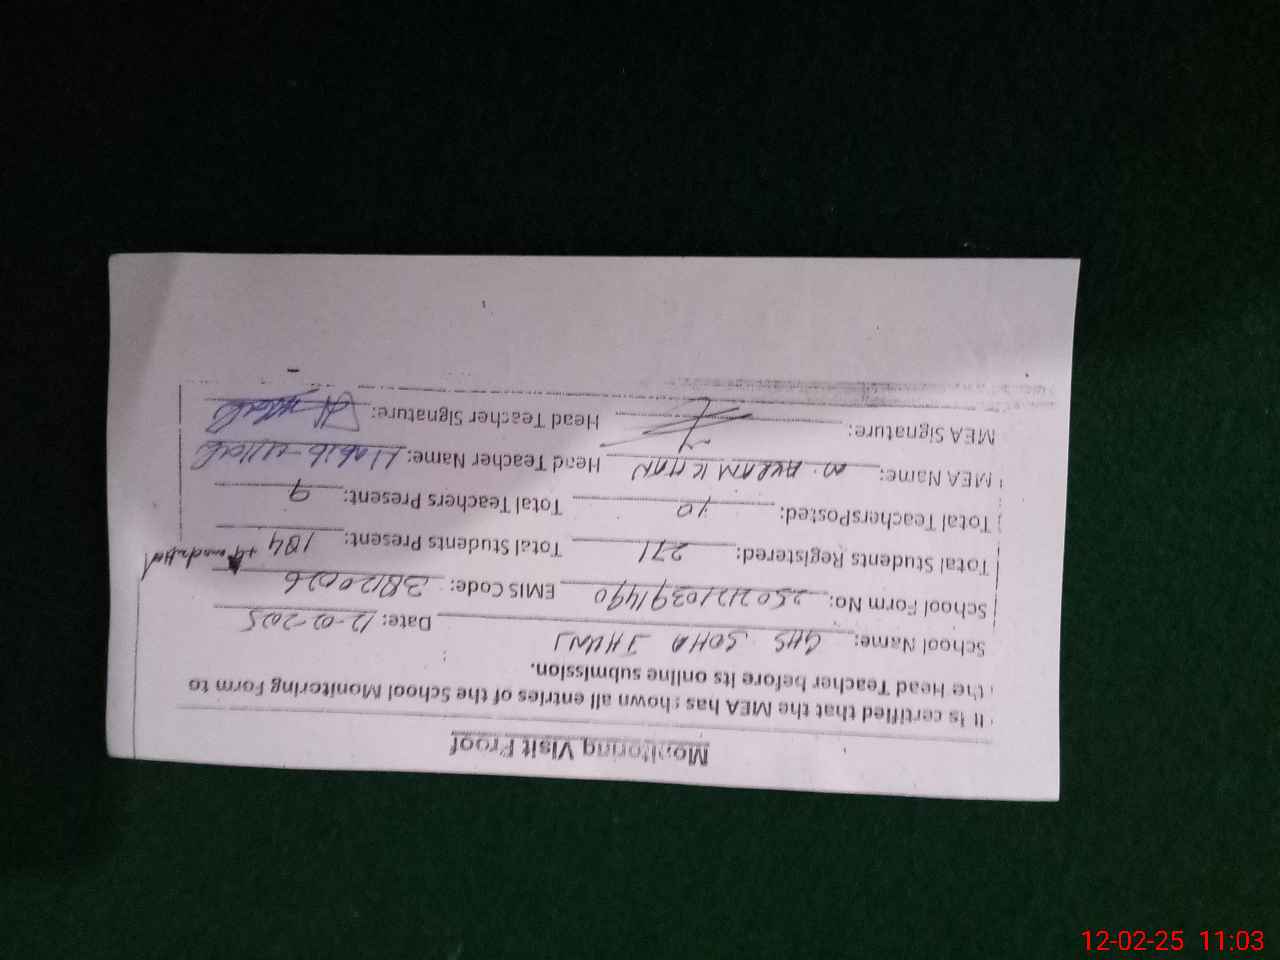 Monitoring Visit Proof
It is certified that the MEA has shown all entries of the School Monitoring Form to
the Head Teacher before its online submission.
School Name: GHS SOHA JHUNJ Date: 12-02-2025
School Form No: 25021210391490 EMIS Code: 38120026
Total Students Registered: 271 Total Students Present: 184 +4
Total TeachersPosted: 10 Total Teachers Present: 9
MEA Name: M. AKRAM KHAN Head Teacher Name: Habib-ullah
MEA Signature: Head Teacher Signature:
12-02-25 11:03